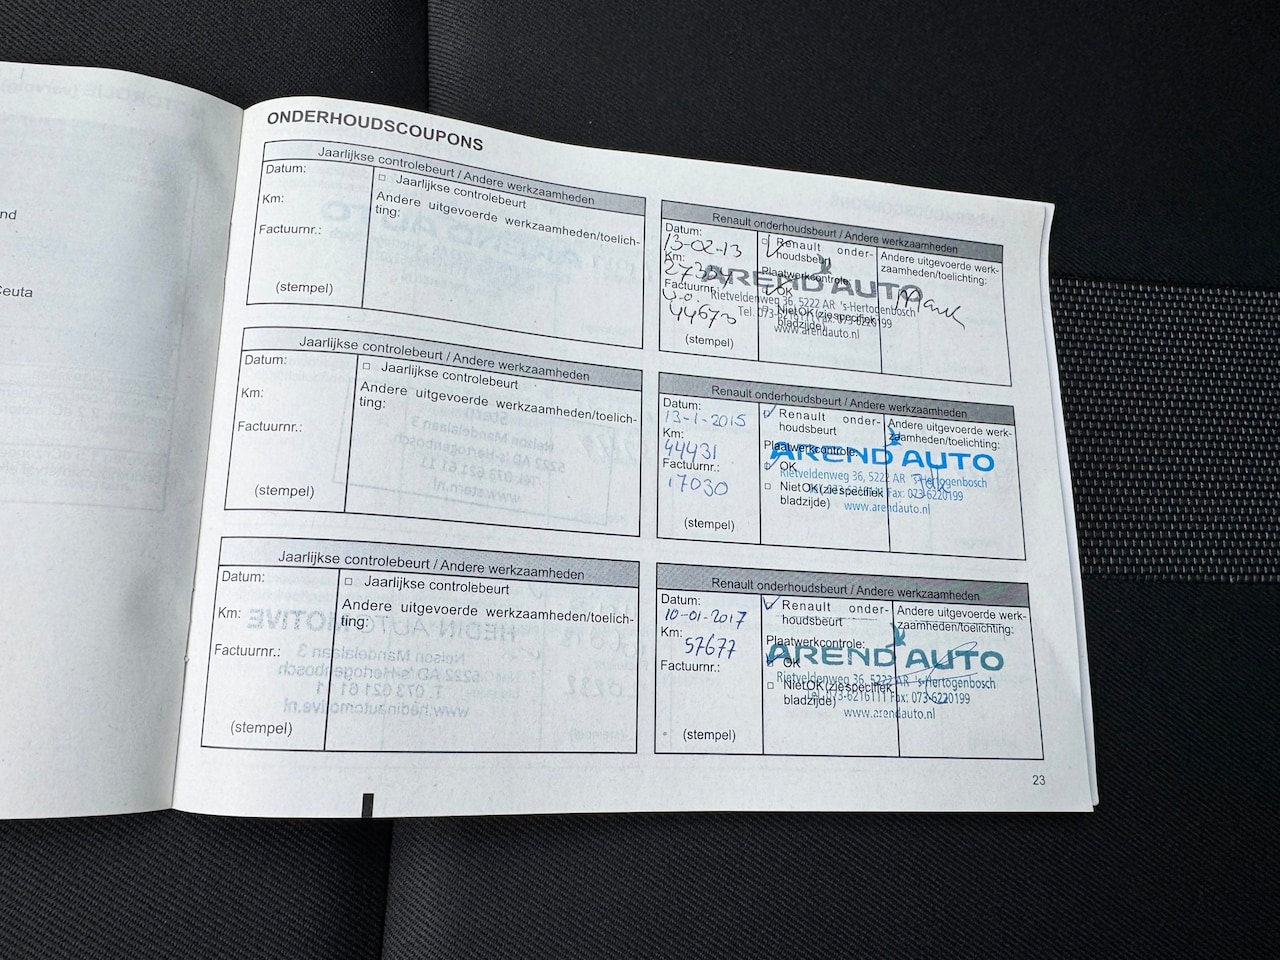 nd
Ceuta
ONDERHOUDSCOUPONS
Jaarlijkse controlebeurt / Andere werkzaamheden
Datum:
Km:
Factuurnr.:
(stempel)
□ Jaarlijkse controlebeurt
Andere uitgevoerde werkzaamheden/toelich-
ting:
Renault onderhoudsbeurt / Andere werkzaamheden
Datum:
13-02-13
Km:
Factuurnr.:
44673
(stempel)
Renault onder-
houdsbeurt
Plaatwerkcontrole:
OK
Niet OK (zie specifiek
bladzijde)
Andere uitgevoerde werk-
zaamheden/toelichting:
AREND AUTO
Rietveldenweg 36, 5222 AR 's-Hertogenbosch
Tel. 073-6216111 Fax: 073-6220199
www.arendauto.nl
Jaarlijkse controlebeurt / Andere werkzaamheden
Datum:
Km:
Factuurnr.:
(stempel)
□ Jaarlijkse controlebeurt
Andere uitgevoerde werkzaamheden/toelich-
ting:
Renault onderhoudsbeurt / Andere werkzaamheden
Datum:
13-1-2015
Km:
44431
Factuurnr.:
17030
(stempel)
Renault onder-
houdsbeurt
Plaatwerkcontrole:
OK
□ Niet OK (zie specifiek
bladzijde)
Andere uitgevoerde werk-
zaamheden/toelichting:
AREND AUTO
Rietveldenweg 36, 5222 AR 's-Hertogenbosch
Tel. 073-6216111 Fax: 073-6220199
www.arendauto.nl
Jaarlijkse controlebeurt / Andere werkzaamheden
Datum:
Km:
Factuurnr.:
(stempel)
□ Jaarlijkse controlebeurt
Andere uitgevoerde werkzaamheden/toelich-
ting:
Renault onderhoudsbeurt / Andere werkzaamheden
Datum:
10-01-2017
Km:
57677
Factuurnr.:
(stempel)
Renault onder-
houdsbeurt
Plaatwerkcontrole:
OK
□ Niet OK (zie specifiek
bladzijde)
Andere uitgevoerde werk-
zaamheden/toelichting:
AREND AUTO
Rietveldenweg 36, 5222 AR 's-Hertogenbosch
Tel. 073-6216111 Fax: 073-6220199
www.arendauto.nl
23